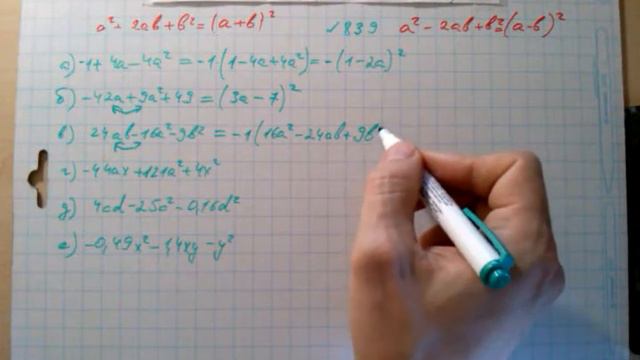 a² + 2ab + b² = (a+b)² 839 a² - 2ab + b² = (a-b)²
а) -1 + 4a - 4a² = -1·(1 - 4a + 4a²) = -(1-2a)²
б) -42a + 9a² + 49 = (3a - 7)²
в) 24ab - 16a² - 9b² = -1(16a² - 24ab + 9b²
г) -44ax + 121a² + 4x²
д) 4cd - 25c² - 0,16d²
е) -0,49x² - 1,4xy - y²